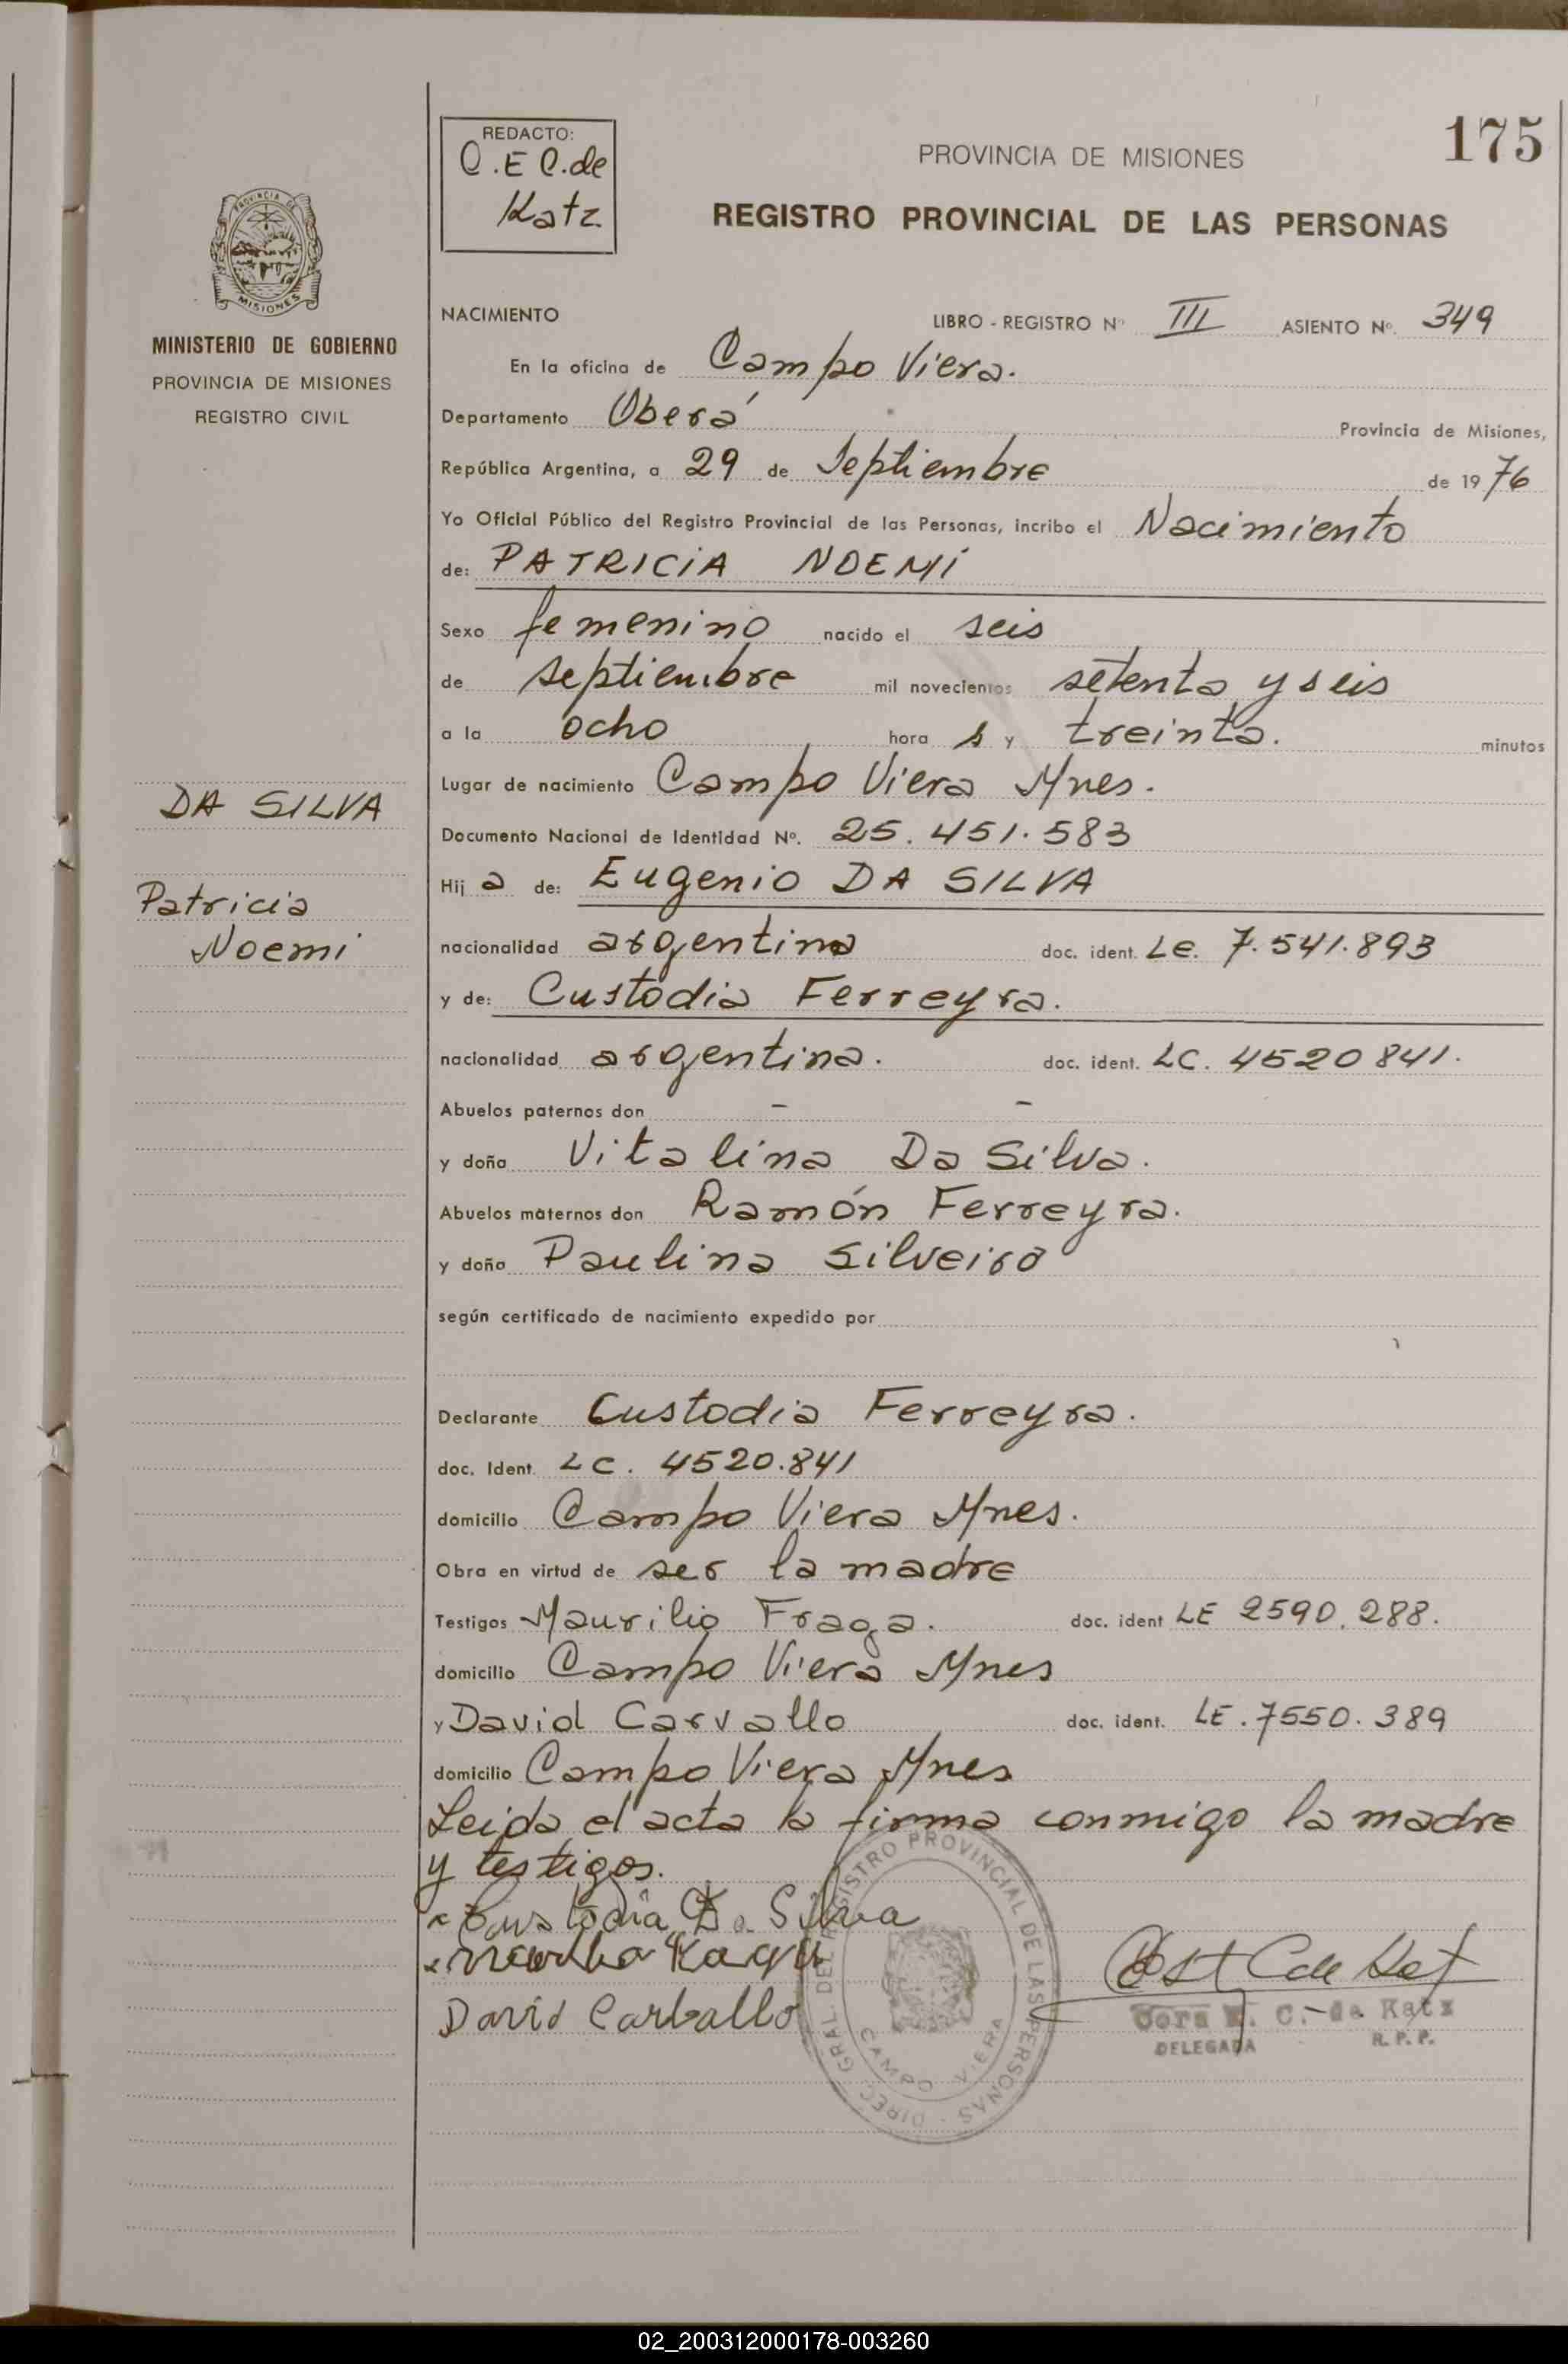 175
REDACTO:
C.E C.de
Katz.
PROVINCIA DE MISIONES
REGISTRO PROVINCIAL DE LAS PERSONAS
PROVINCIA DE
MISIONES
MINISTERIO DE GOBIERNO
PROVINCIA DE MISIONES
REGISTRO CIVIL
DA SILVA
Patricia
Noemi
NACIMIENTO LIBRO - REGISTRO Nº III ASIENTO Nº. 349
En la oficina de Campo Viera.
Departamento Oberá Provincia de Misiones,
República Argentina, a 29 de Septiembre de 1976
Yo Oficial Público del Registro Provincial de las Personas, incribo el Nacimiento
de: PATRICIA NOEMÍ
Sexo femenino nacido el seis
de septiembre mil novecientos setenta y seis
a la ocho hora s y treinta. minutos
Lugar de nacimiento Campo Viera Mnes.
Documento Nacional de Identidad Nº. 25.451.583
Hij a de: Eugenio DA SILVA
nacionalidad argentina doc. ident. LE. 7.541.893
y de: Custodia Ferreyra.
nacionalidad argentina. doc. ident. LC. 4520841.
Abuelos paternos don - -
y doña Vitalina Da Silva.
Abuelos maternos don Ramón Ferreyra.
y doña Paulina Silveira
según certificado de nacimiento expedido por
Declarante Custodia Ferreyra.
doc. Ident. LC. 4520.841
domicilio Campo Viera Mnes.
Obra en virtud de ser la madre
Testigos Maurilio Fraga. doc. ident LE 2590.288.
domicilio Campo Viera Mnes
y David Carvallo doc. ident. LE.7550.389
domicilio Campo Viera Mnes
Leida el acta la firma conmigo la madre
y testigos.
Custodia Da Silva
David Carballo
DIREC. GRAL. DEL REGISTRO PROVINCIAL DE LAS PERSONAS
CAMPO VIERA
C.-de Katz
DELEGADA R.P.P.
02_200312000178-003260